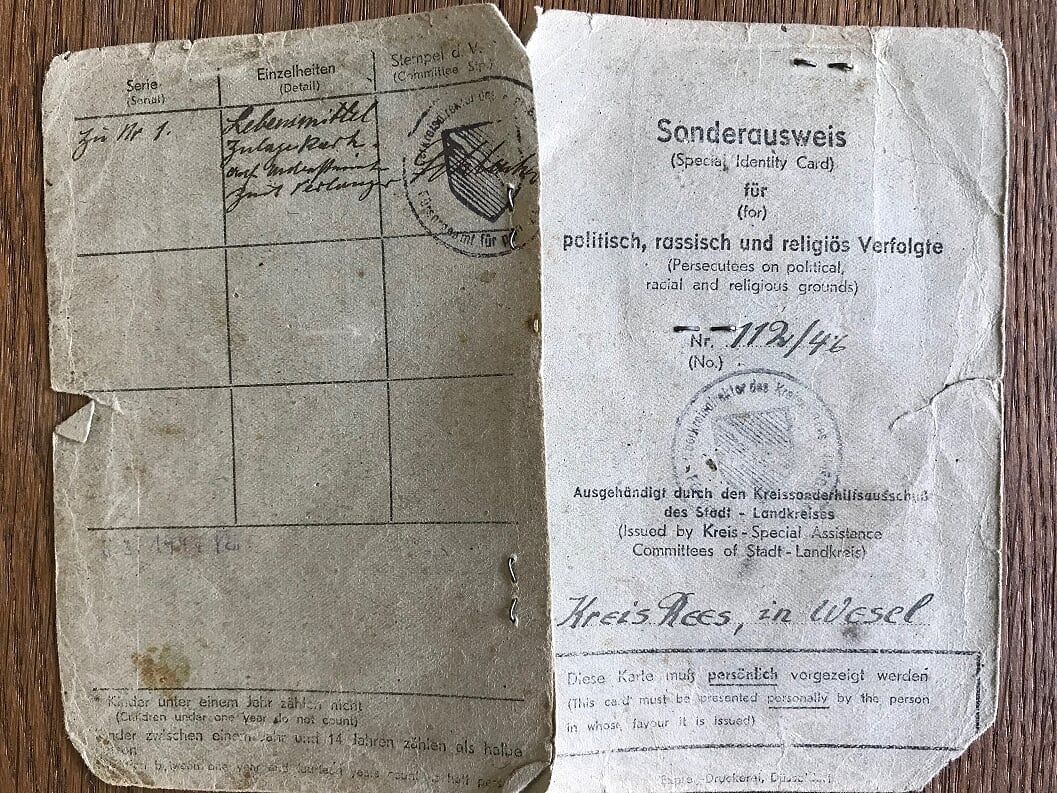 Serie
(Serial)
Einzelheiten
(Detail)
Stempel d. V.
(Committee Stp.)
Zu Nr 1.
Lebensmittel
Zulagekart.
auf
Fürsorgeamt für
* Kinder unter einem Jahr zählen nicht
(Children under one year do not count)
Kinder zwischen einem Jahr und 14 Jahren zählen als halbe
between one year and fourteen years count as half
Sonderausweis
(Special Identity Card)
für
(for)
politisch, rassisch und religiös Verfolgte
(Persecutees on political,
racial and religious grounds)
Nr. 112/46
(No.)
des Kreises
Ausgehändigt durch den Kreissonderhilfsausschuß
des Stadt - Landkreises
(Issued by Kreis - Special Assistance
Committees of Stadt - Landkreis)
Kreis Rees, in Wesel
Diese Karte muß persönlich vorgezeigt werden
(This card must be presented personally by the person
in whose favour it is issued)
Druckerei,